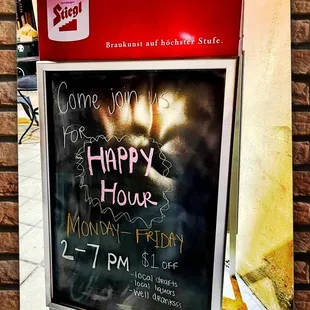 Stiegl
Braukunst auf höchster Stufe.
Come join us
for
HAPPY
HOUR
MONDAY - FRIDAY
2-7 PM $1 OFF
- local drafts
- local liquors
- well drankss